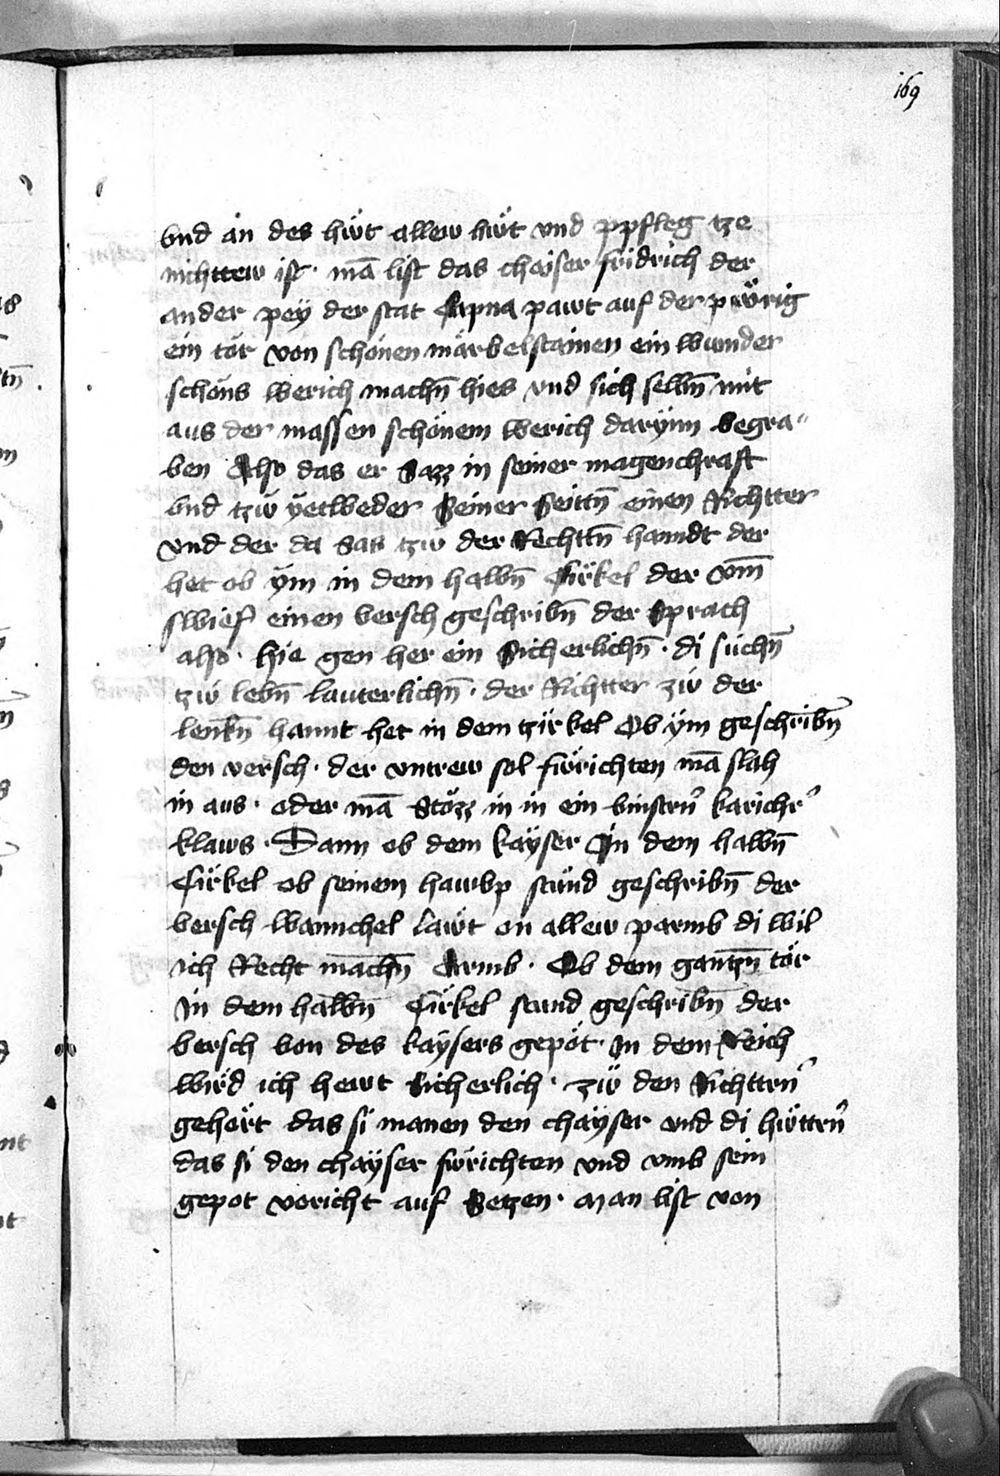 169
vnd än des hüt allew hüt vnd ppfleg tze
nichttew ist · mā list das chaÿser fridrich der
ander peÿ der stat Capua pawt auf der pürig
ein tör von schönen märbelstainen ein wunder
schöns werich machn̄ hies vnd sich selbn̄ mit
aus der massen schönem werich darÿnn begra⸗
ben Also das er Sazz in seiner magenchraft
vnd tzw ÿetweder Seiner Seittn̄ einen Richtter
vnd der da Sas tzw der Rechttn̄ hanndt der
het ob ÿm in dem halbn̄ Cirkel der vm̄
swief einen versch geschribn̄ der Sprach
also · hie gen her ein Sicherlichn̄ · di suchn̄
tzw lebn̄ lauterlichn̄ · der Richtter zw der
lenkn̄ hannt het in dem tzirkel Ob ÿm geschribn̄
den versch · der vntrew sol fürichten mā slah
in aus · oder mā Stözz in in ein vinstrn̄ karichr̄
klaws · Dann ob dem kaÿser In dem halbn̄
Cirkel ob seinem hawbp stünd geschribn̄ der
versch wannchel lawt on allew parmb di wil
ich Recht machn̄ Armb · Ob dem gantzn̄ tör
In dem halbn̄ Cirkel stund geschribn̄ der
versch von des kaÿsers gepöt · In dem Reich
wird ich hewt Sicherlich · zw den Richttrn̄
gehört das si manen den chaÿser vnd di hüttrn̄
das si den chaÿser fürichten vnd vmb sein
gepot voricht auf Setzen · Man list von